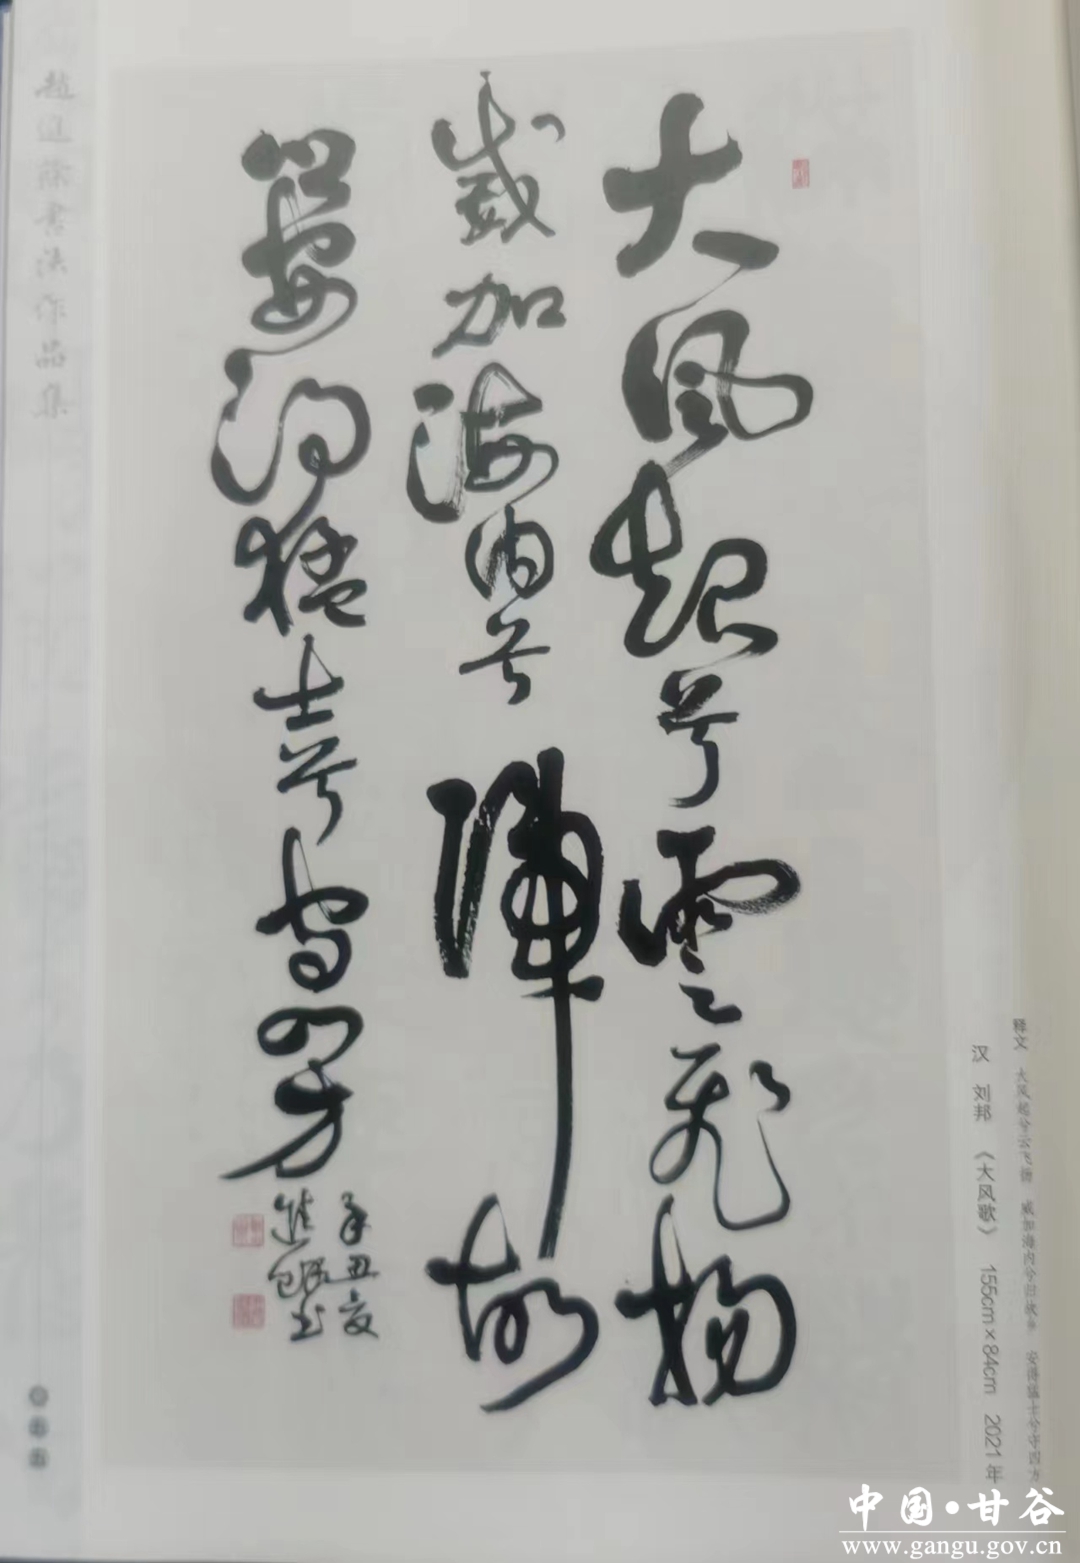 大风起兮雲飞扬
威加海内兮归故
鄉安得猛士兮守四方
辛丑夏
进
书
释文 大风起兮云飞扬 威加海内兮归故乡 安得猛士兮守四方
汉 刘邦 《大风歌》 155cm×84cm 2021年
书法作品集
中国·甘谷
www.gangu.gov.cn